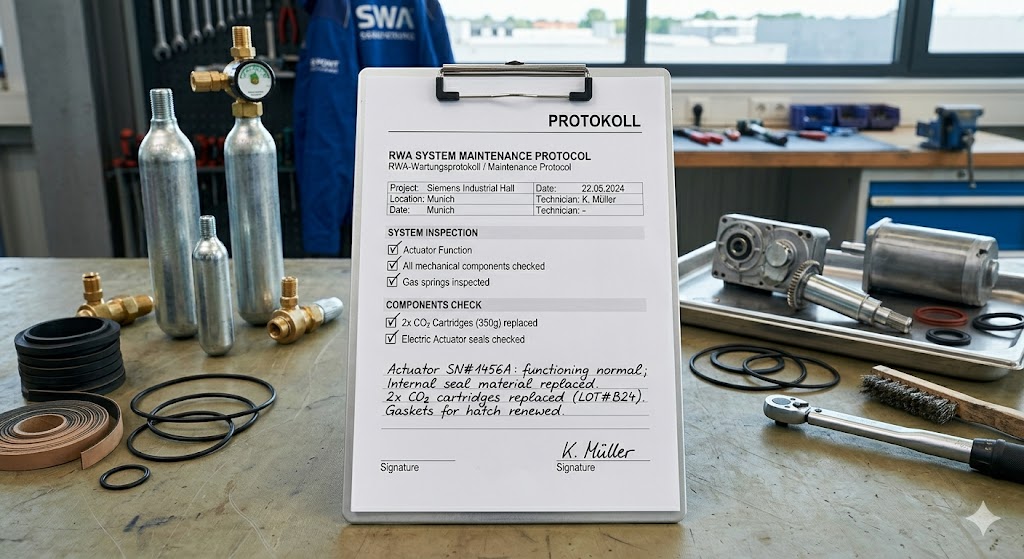 SWA
PROTOKOLL
RWA SYSTEM MAINTENANCE PROTOCOL
RWA-Wartungsprotokoll / Maintenance Protocol
Project: Siemens Industrial Hall Date: 22.05.2024
Location: Munich Technician: K. Müller
Date: Munich Technician: -
SYSTEM INSPECTION
Actuator Function
All mechanical components checked
Gas springs inspected
COMPONENTS CHECK
2x CO₂ Cartridges (350g) replaced
Electric Actuator seals checked
Actuator SN#1456A: functioning normal;
Internal seal material replaced.
2x CO₂ cartridges replaced (LOT#B24).
Gaskets for hatch renewed.
K. Müller
Signature Signature